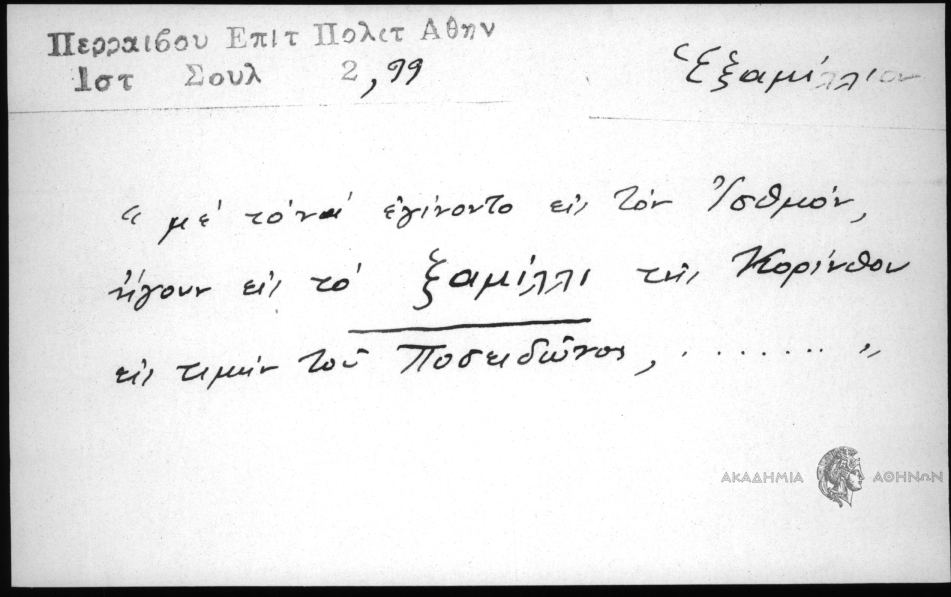 Περραιβου Επιτ Πολιτ Αθην
Ιστ Σουλ 2,99
Ἑξαμίλλιον
“ μέ τό νά ἐγίνοντο εἰς τόν Ἰσθμόν,
ἤγουν εἰς τό ξαμίλλι τῆς Κορίνθου
εἰς τιμήν τοῦ Ποσειδῶνος, ........ ”
ΑΚΑΔΗΜΙΑ ΑΘΗΝΩΝ